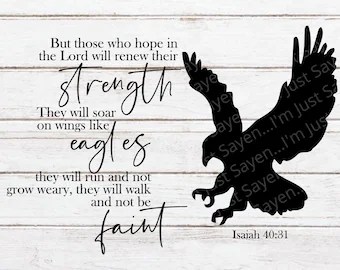 But those who hope in
the Lord will renew their
strength
They will soar
on wings like
eagles
they will run and not
grow weary, they will walk
and not be
faint
Isaiah 40:31
Sayen...I'm Just Sayen